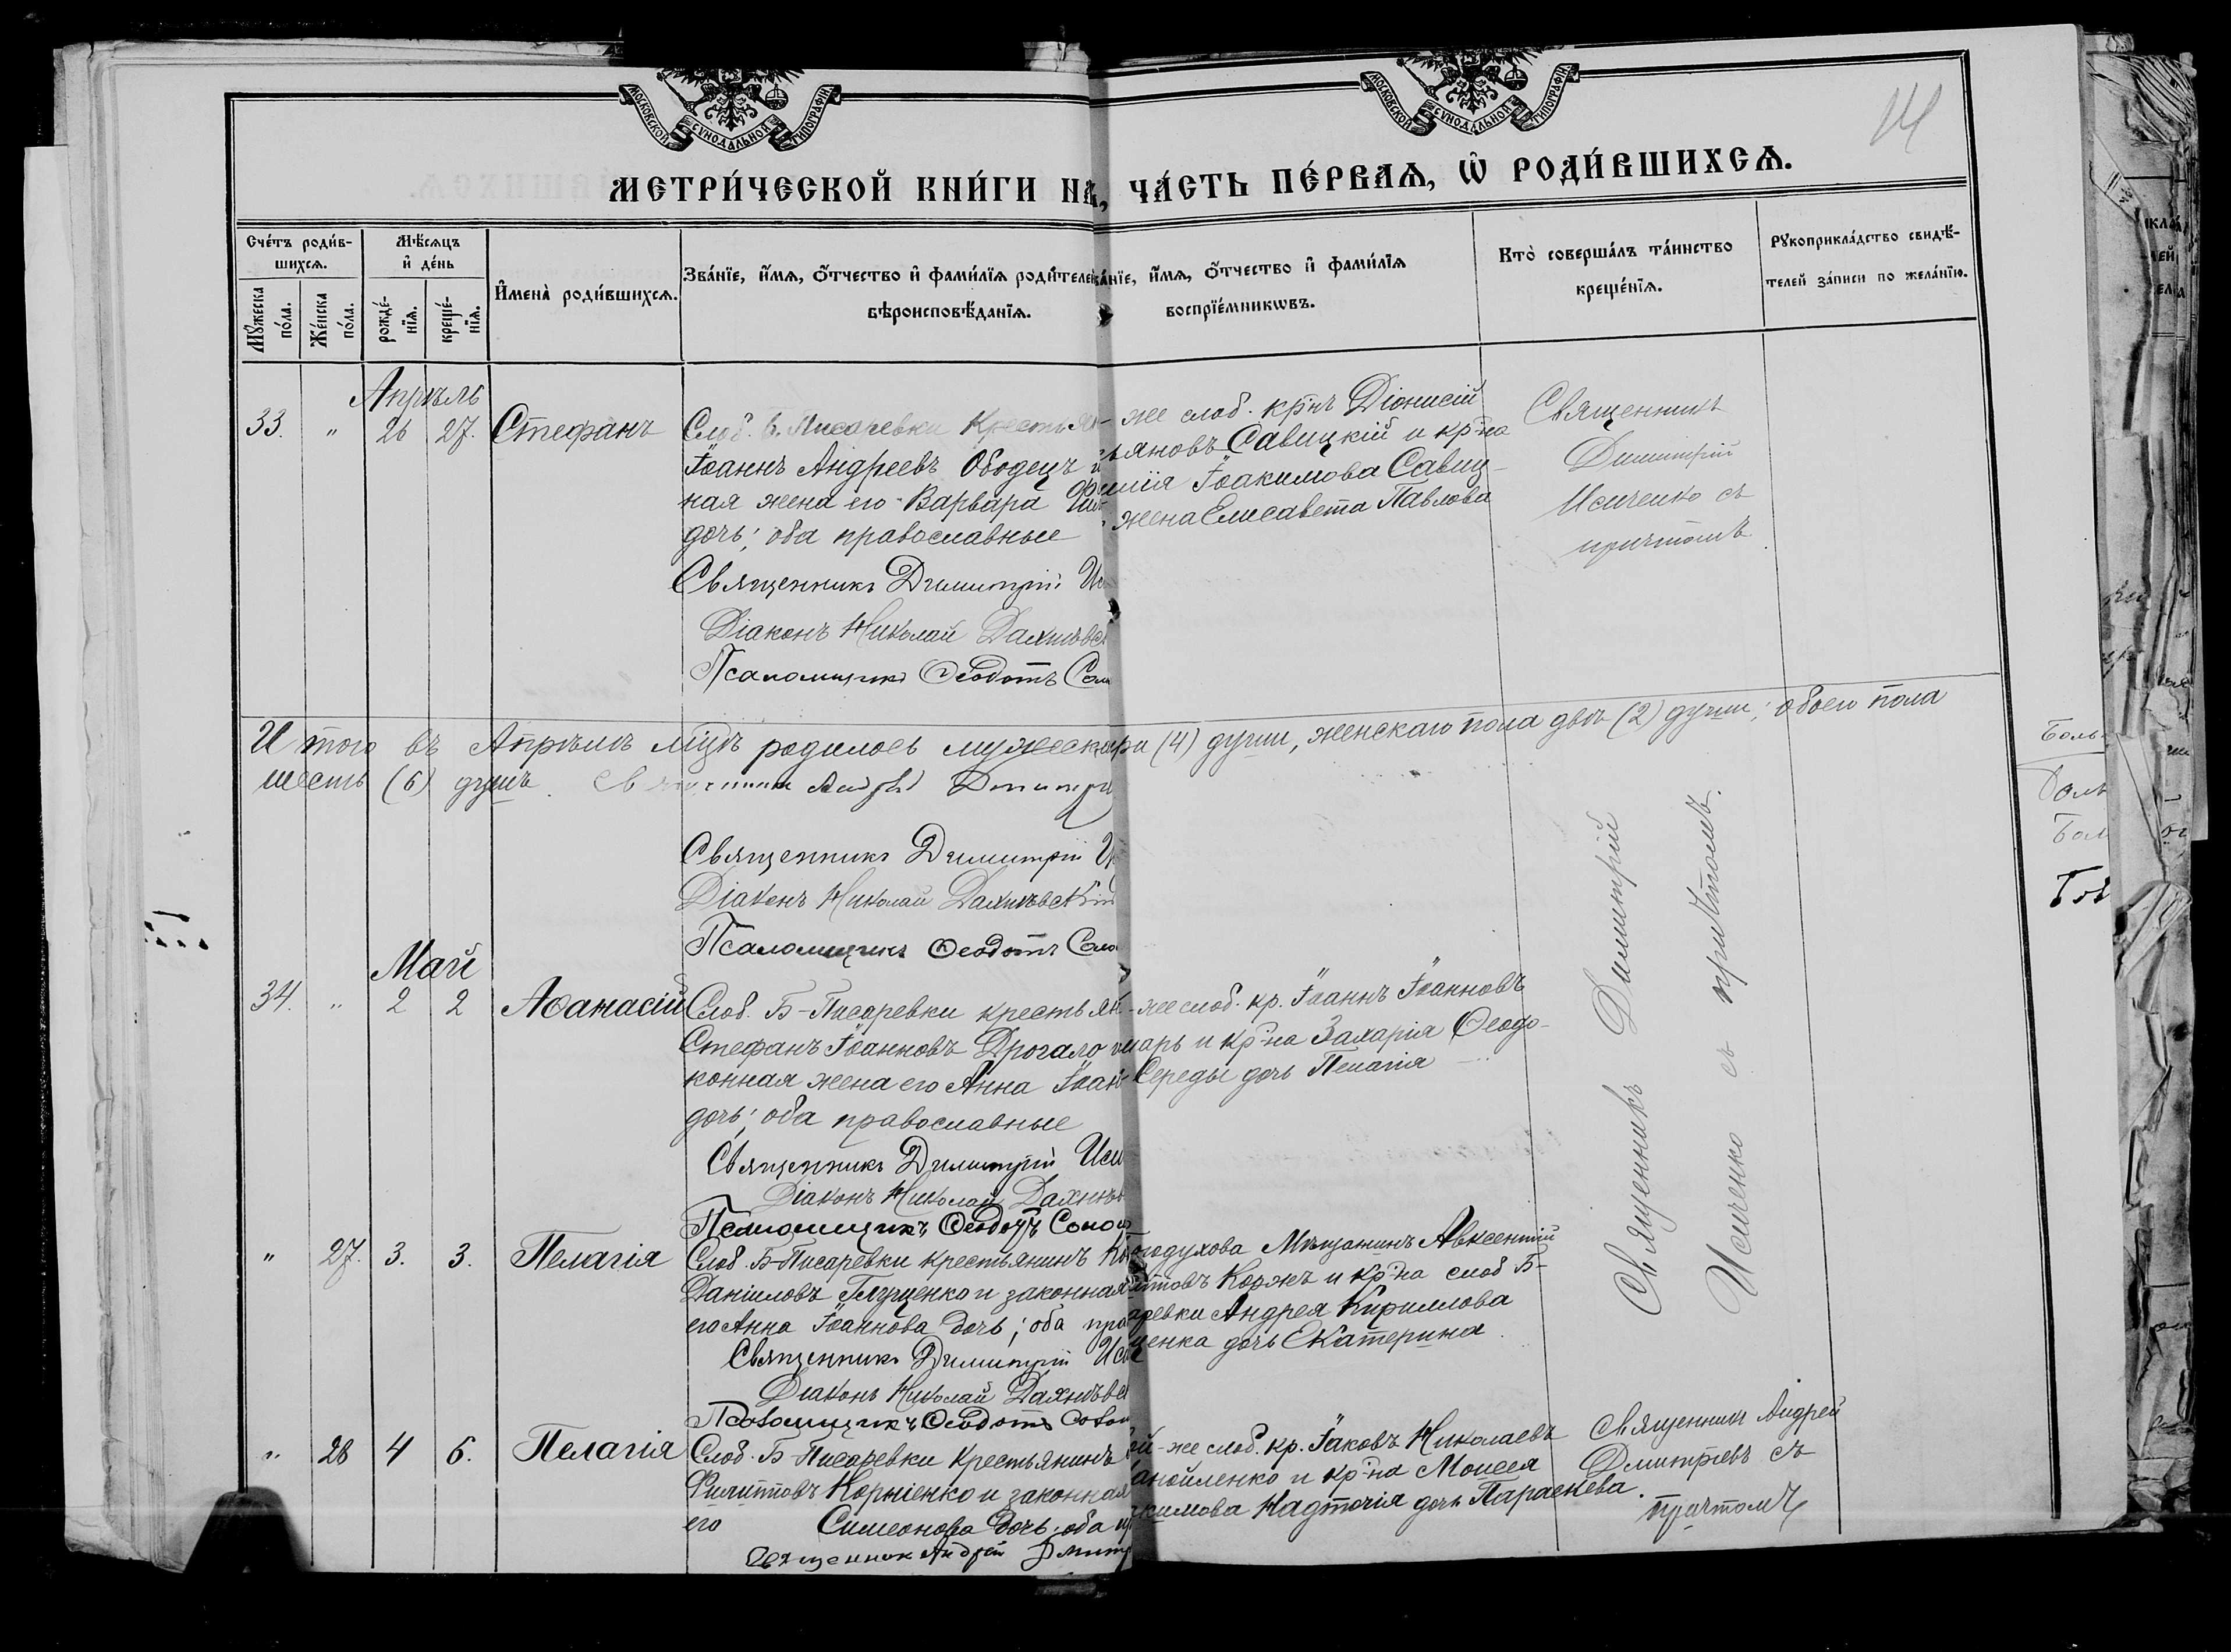 МОСКОВСКОЙ СУНОДАЛЬНОЙ ТИПОГРАФІИ
МОСКОВСКОЙ СУНОДАЛЬНОЙ ТИПОГРАФІИ
МЕТРИ́ЧЕСКОЙ КНИ́ГИ НА, ЧА́СТЬ ПЕ́РВАЯ, Ѡ РОДИ́ВШИХСЯ.
Сче́тъ роди́в-
шихся.
Мѣ́сяцъ
и҆ де́нь
Мꙋ́жеска
по́ла.
Же́нска
по́ла.
рожде́-
нїя.
креще́-
нїя.
И҆мена̀ роди́вшихся.
Зва́нїе, и҆́мя, ѻ҆́тчество и҆ фами́лїя роди́телей
вѣроисповѣ́данїя.
зва́нїе, и҆́мя, ѻ҆́тчество и҆ фами́лїя
воспрїе́мникѡвъ.
Кто̀ соверша́лъ та́инство
креще́нїя.
Рꙋкоприкла́дство свидѣ́-
телей за́писи по жела́нїю.
Апрѣль
33. " 26 27. Стефанъ
Слоб. Б. Писаревки Крестьян-
Іоаннъ Андреевъ Ободецъ и
ная жена его Варвара
дочь; оба православные
Священникъ Димитрій
Діаконъ Николай
Псаломщикъ Ѳеодотъ
же слоб. кр-нъ Діонисій
ьяновъ Савицкій и кр-на
Іоакимова Савиц-
жена Елисавета Павлова
Священникъ
Димитрій
Исиченко съ
причтомъ
Итого въ Апрѣлѣ мцѣ родилось мужеска (4) души, женскаго пола двѣ (2) души; обоего пола
шесть (6) душъ.
Священникъ Димитрій
Діаконъ Николай
Псаломщикъ Ѳеодотъ
Май
34. " 2 2 Аѳанасій
Слоб. Б-Писаревки крестьян
Стефанъ Іоанновъ Дрогало
конная жена его Анна Іоан
дочь; оба православные
Священникъ Димитрій Иси
Діаконъ Николай
Псаломщикъ Ѳеодотъ
же слоб. кр. Іоаннъ Іоанновъ
марь и кр-на Захарія Ѳеодо-
Середы дочь Пелагія
" 27. 3. 3. Пелагія
Слоб. Б-Писаревки крестьянинъ
Даніиловъ Глущенко и законная
его Анна Іоаннова дочь; оба пра
Священникъ Димитрій Иси
Діаконъ Николай
Псаломщикъ Ѳеодотъ
годухова Мѣщанинъ Авксентій
Коржъ и кр-на слоб Б-
аревки Андрея Кириллова
щенка дочь Екатерина
Священникъ Димитрій
Исиченко съ причтомъ.
" 28 4 6. Пелагія
Слоб. Б-Писаревки Крестьянинъ
Филипповъ Корніенко и законная
его Симеонова дочь; оба
Священник Андрей Дмитр
ой-же слоб. кр. Іаковъ Николаевъ
анойленко и кр-на Моисея
кимова Надточія дочь Параскева.
Священник Андрей
Дмитріевъ съ
причтомъ